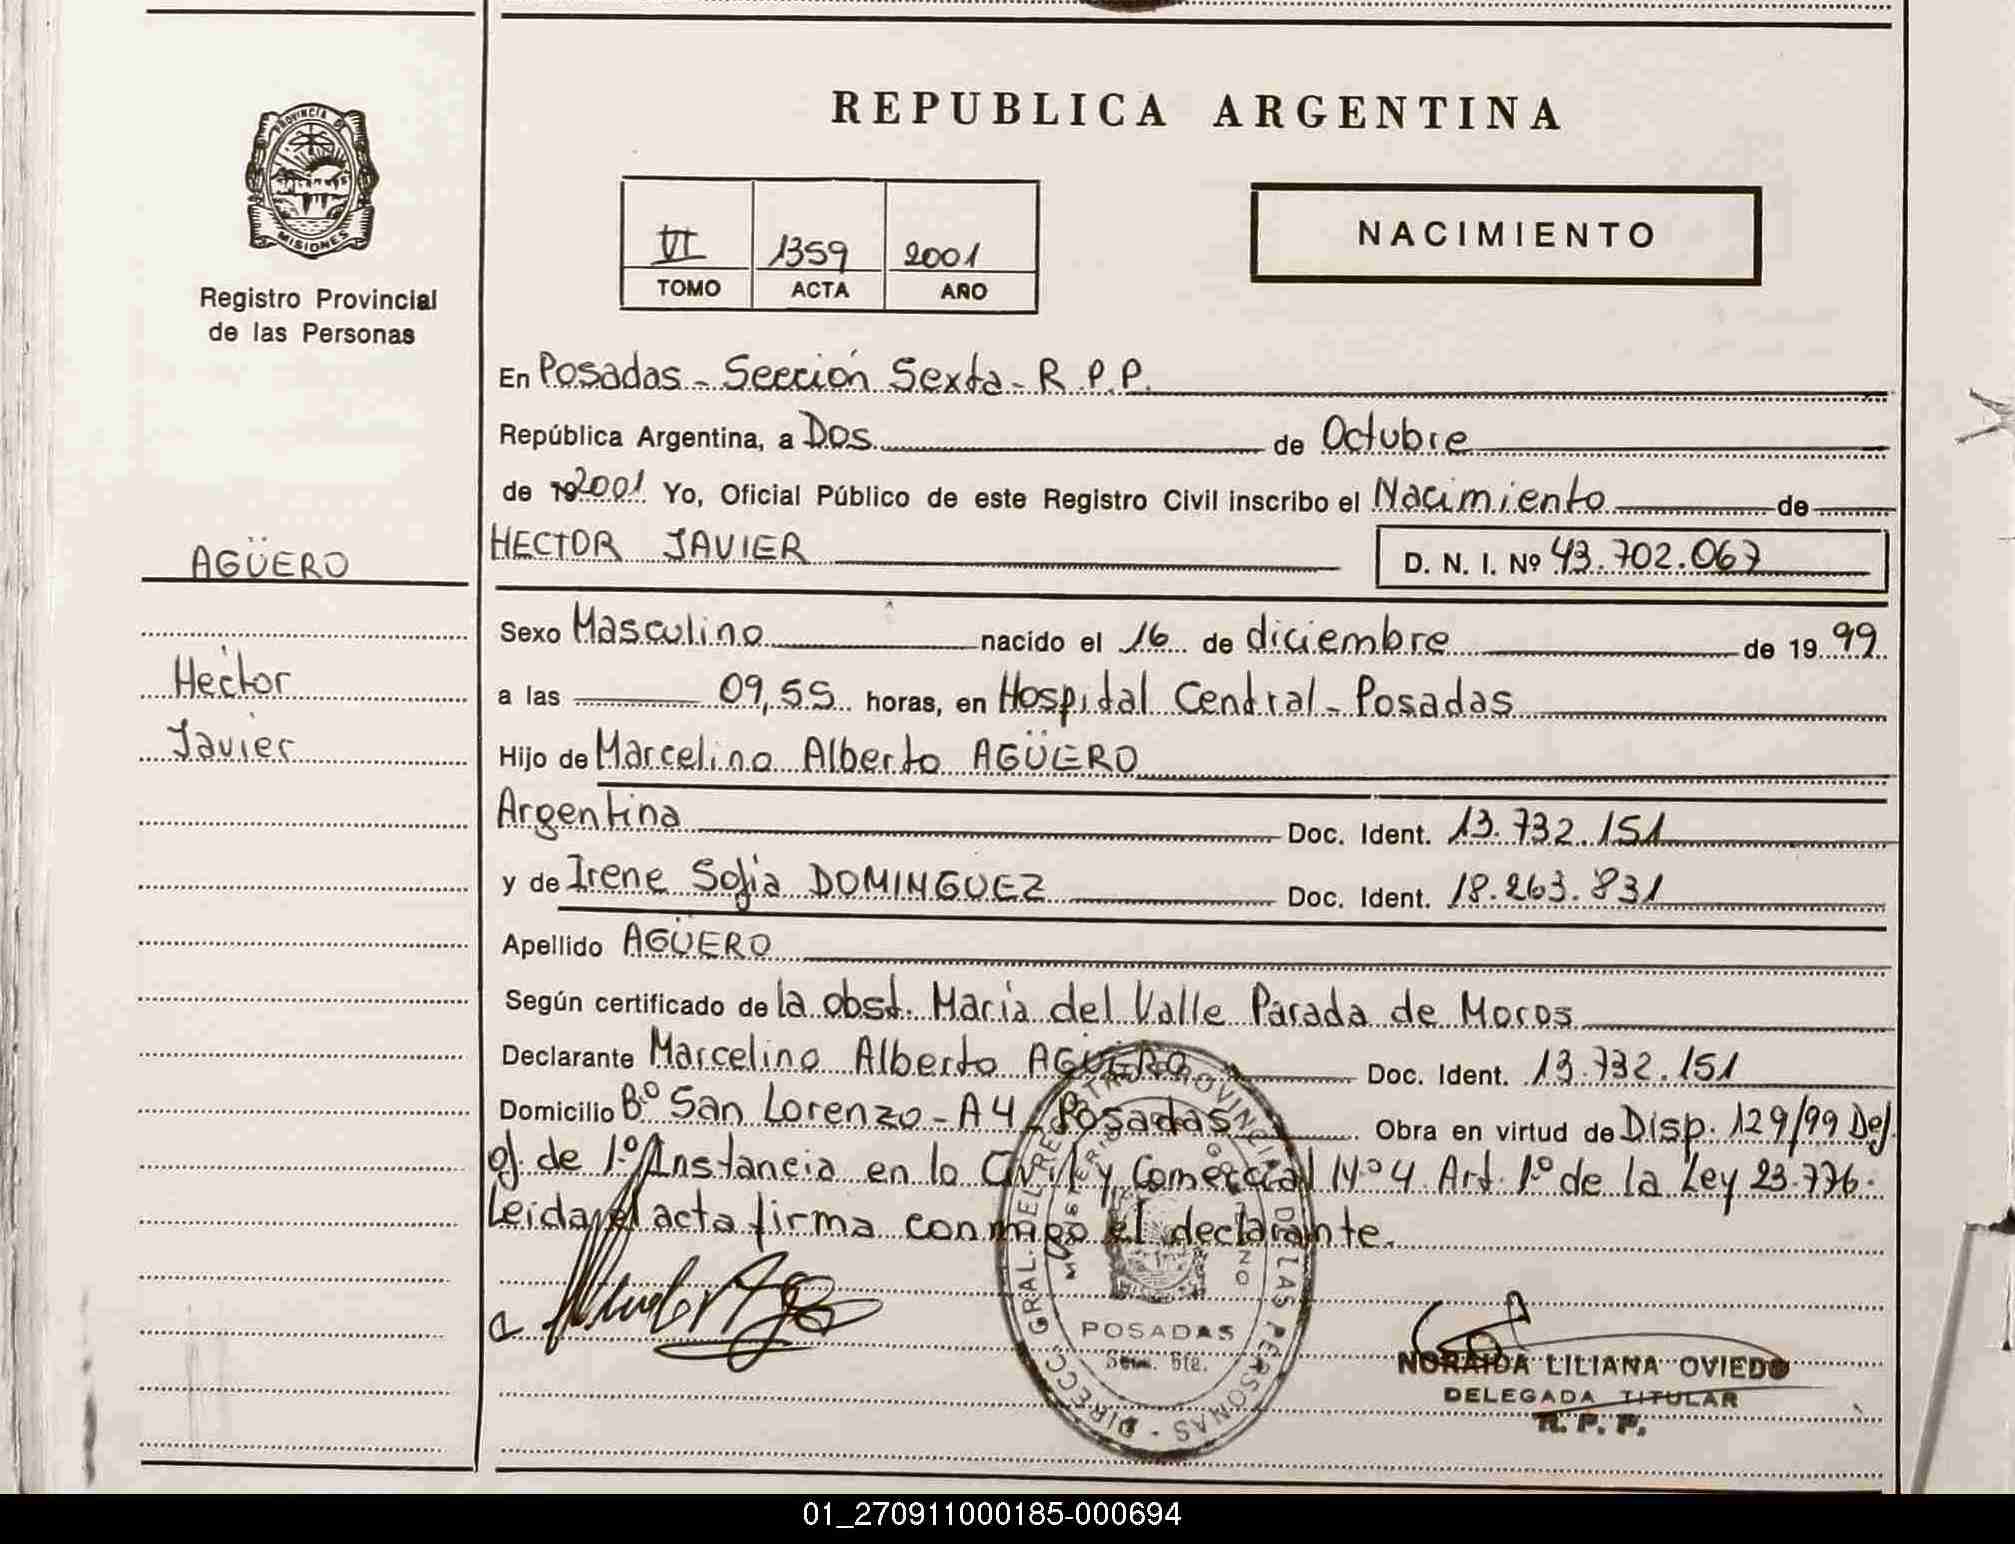 REPUBLICA ARGENTINA
PROVINCIA DE
MISIONES
Registro Provincial
de las Personas
VI 1359 2001
TOMO ACTA AÑO
NACIMIENTO
En Posadas - Sección Sexta - R.P.P.
República Argentina, a Dos de Octubre
de 192001 Yo, Oficial Público de este Registro Civil inscribo el Nacimiento de
AGÜERO
HECTOR JAVIER D. N. I. Nº 43.702.067
Sexo Masculino nacido el 16 de diciembre de 1999
Hector
a las 09,55 horas, en Hospital Central - Posadas
Javier
Hijo de Marcelino Alberto AGÜERO
Argentina Doc. Ident. 13.732.151
y de Irene Sofia DOMINGUEZ Doc. Ident. 18.263.831
Apellido AGÜERO
Según certificado de la obst. Maria del Valle Parada de Moros
Declarante Marcelino Alberto AGÜERO Doc. Ident. 13.732.151
Domicilio Bº San Lorenzo - A 4 - Posadas Obra en virtud de Disp. 129/99 Def.
of. de 1º Instancia en lo Civil y Comercial Nº 4 Art. 1º de la Ley 23.776.
Leida el acta firma conmigo el declarante.
DIRECC. GRAL. DEL REGISTRO PROVINCIAL DE LAS PERSONAS
MINISTERIO GOBIERNO
POSADAS
Secc. 6ta.
NORAIDA LILIANA OVIEDO
DELEGADA TITULAR
R. P. P.
01_270911000185-000694